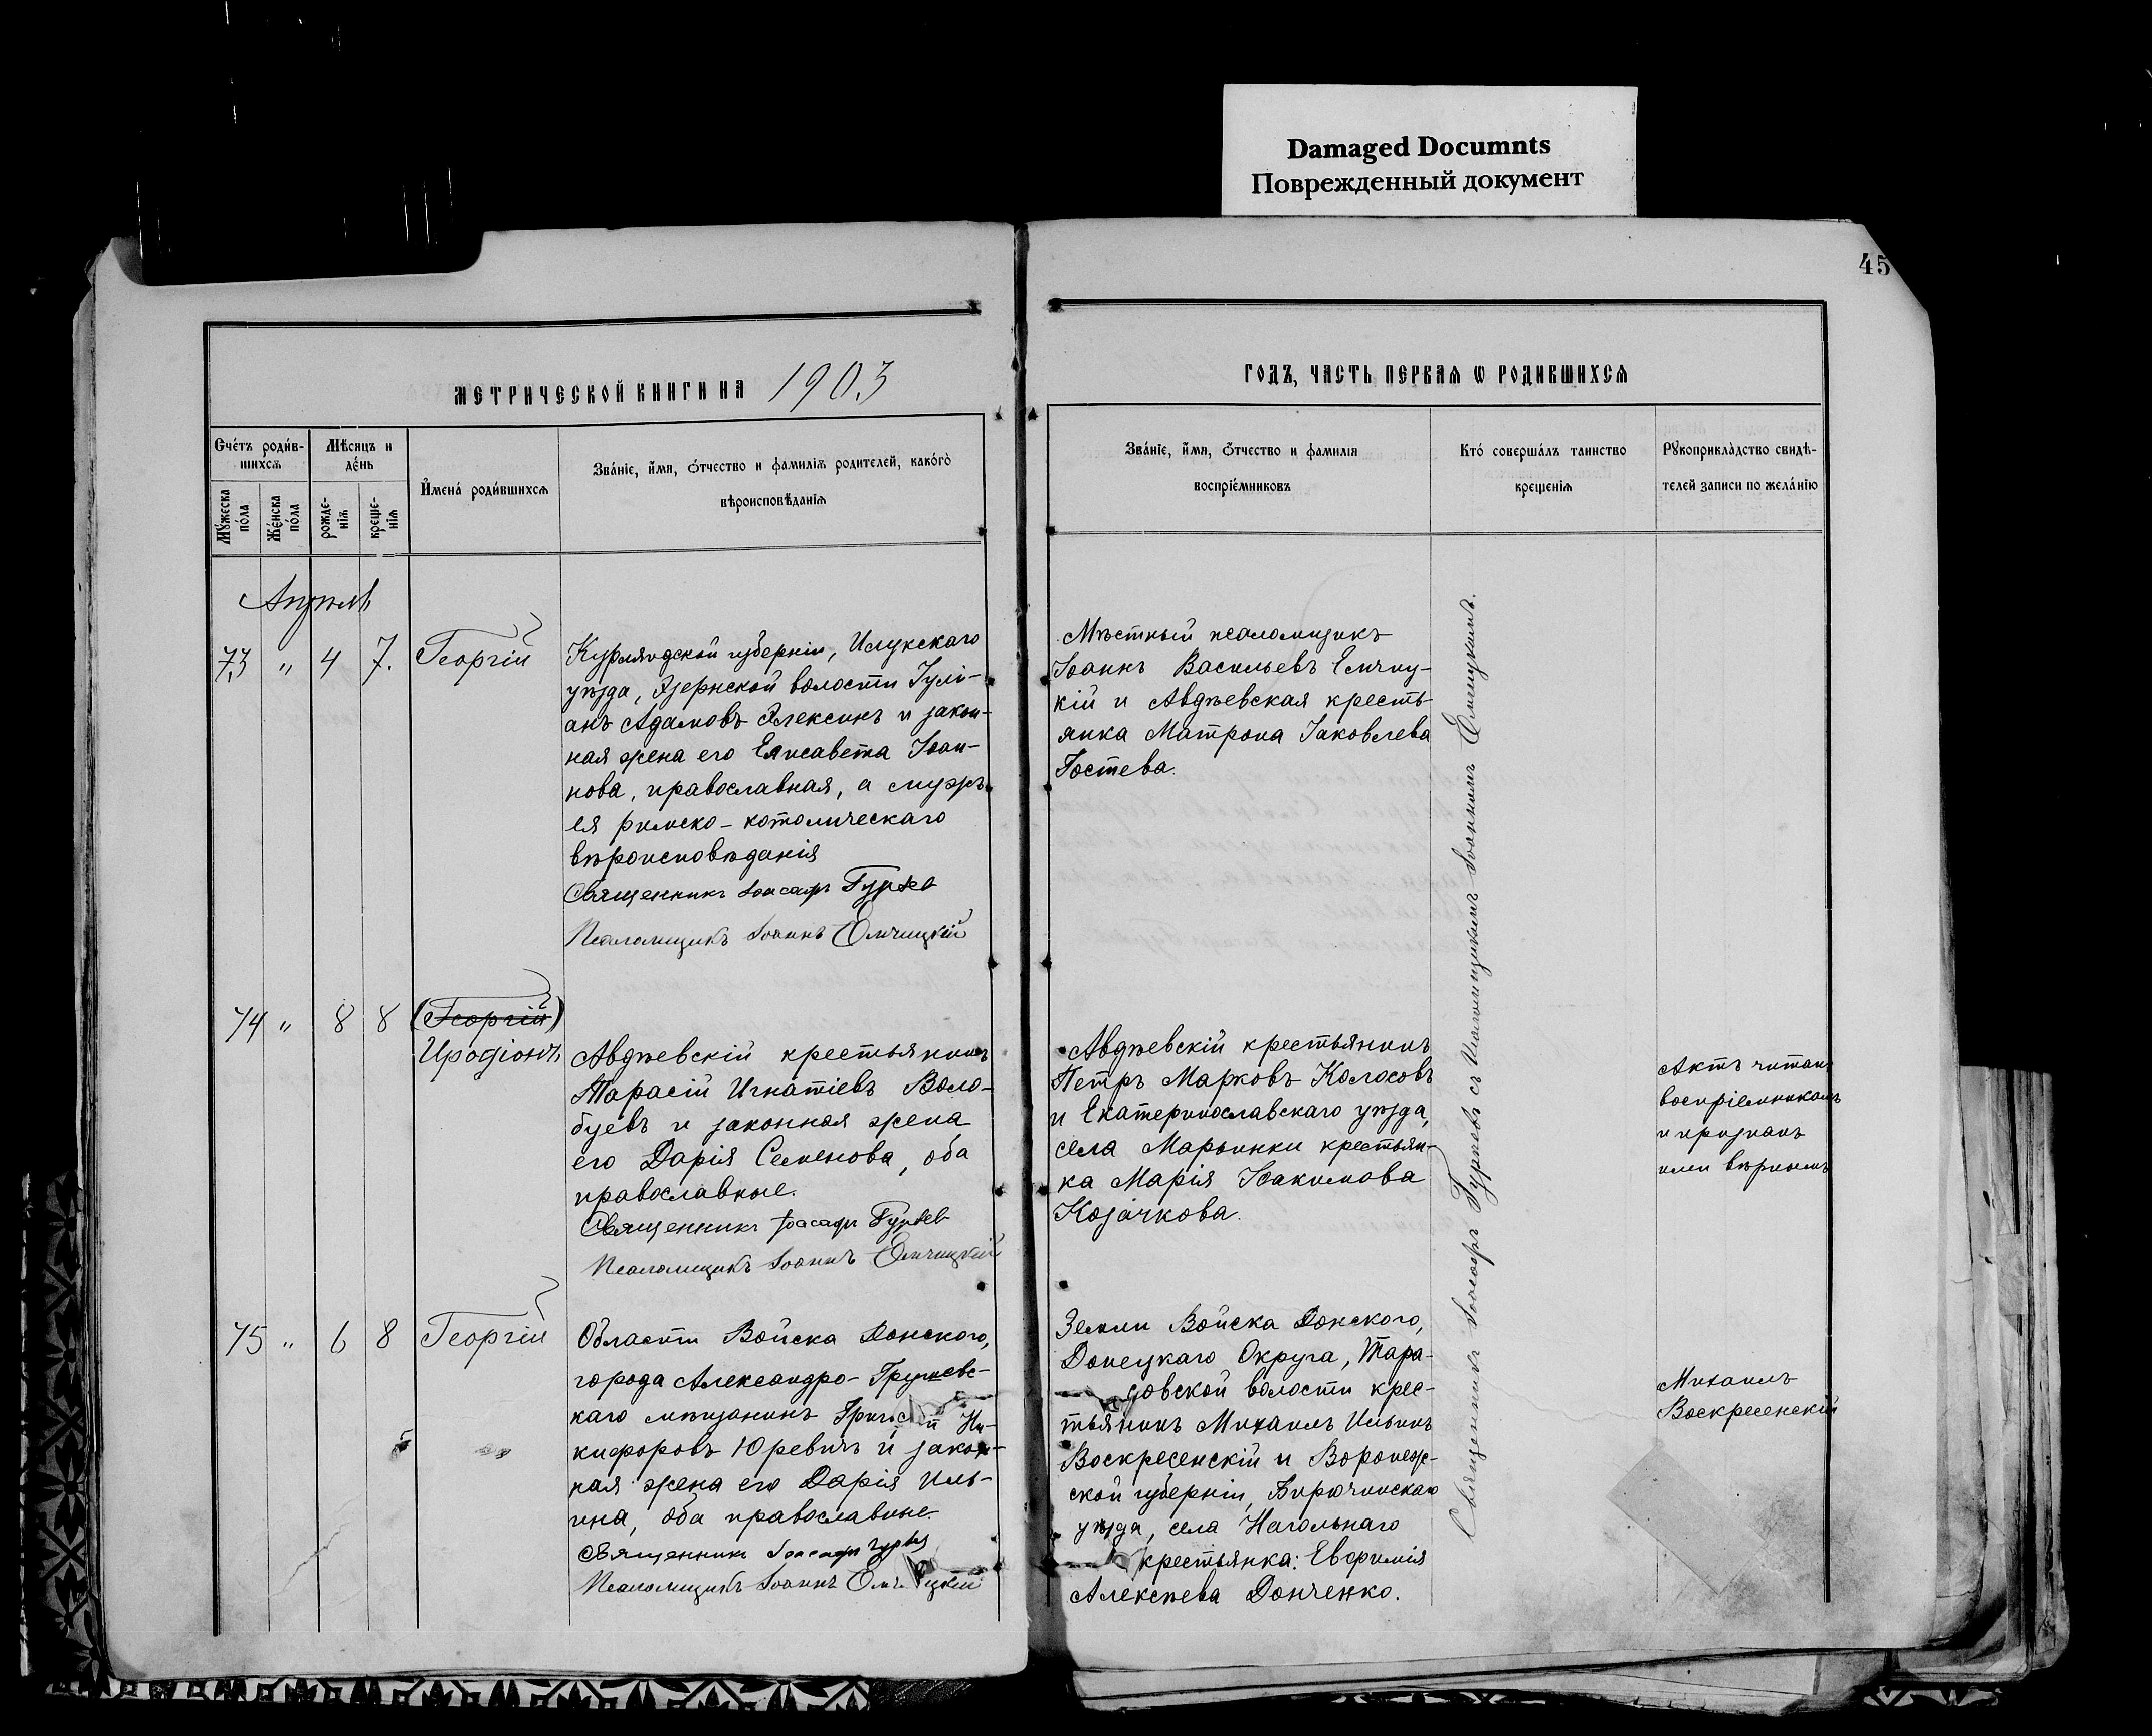 Damaged Documnts
Поврежденный документ
45
МЕТРИЧЕСКОЙ КНИГИ НА 1903
ГОДЪ, ЧАСТЬ ПЕРВАѦ Ѡ РОДИВШИХСѦ
Сче́тъ роди́в-
шихсѧ
Мꙋ́жеска по́ла
Же́нска по́ла
Мѣсяцъ и
де́нь
рожде-
нїѧ
креще-
нїѧ
И҆мена̀ роди́вшихсѧ
Зва́нїе, и҆́мя, ѻ҆́тчество и фамилїѧ родителей, како́гѡ
вѣроисповѣданїѧ
Зва́нїе, и҆́мя, ѻ҆́тчество и фамилїя
воспрїе́мниковъ
Кто́ соверша́лъ таинство
крещенїѧ
Рꙋкоприкла́дство свидѣ-
телей записи по жела́нїю
Апрѣль
73 " 4 7. Георгій
Курляндской губерніи, Илукскаго
уѣзда, Эзернской волости Іулі-
анъ Адамовъ Алексинъ и закон-
ная жена его Елисавета Іоан-
нова, православная, а мужъ
ея римско-католическаго
вѣроисповѣданія
Священникъ Іоасафъ Гурьев
Псаломщикъ Іоаннъ Емчицкій
Мѣстный псаломщикъ
Іоаннъ Васильевъ Емчиц-
кій и Авдѣевская кресть-
янка Матрона Іаковлева
Гостева.
74 " 8 8 (Георгій)
Иродіонъ
Авдѣевскій крестьянинъ
Тарасій Игнатіевъ Воло-
буевъ и законная жена
его Дарія Семенова, оба
православные.
Священникъ Іоасафъ Гурьев
Псаломщикъ Іоаннъ Емчицкій
Авдѣевскій крестьянинъ
Петръ Марковъ Колосовъ
и Екатеринославскаго уѣзда,
села Марьинки крестьян-
ка Марія Іоакимова
Козачкова.
Актъ читанъ
воспріемникамъ
и признанъ
ими вѣрнымъ
75 " 6 8 Георгій
Области Войска Донского,
города Александро-Грушевс-
каго мѣщанинъ Ни-
кифоровъ Юревичъ и закон-
ная жена его Дарія Иль-
ина, оба православные.
Священникъ Іоасафъ Гурьев
Псаломщикъ Іоаннъ
Земли Войска Донского,
Донецкаго Округа, Тара-
совской волости крес-
тьянинъ Михаилъ Ильинъ
Воскресенскій и Воронеж-
ской губерніи, Бирюченскаго
уѣзда, села Нагольнаго
крестьянка: Евфимія
Алексѣева Донченко.
Михаилъ
Воскресенскій
Священникъ Іоасафъ Гурьевъ съ псаломщикомъ Іоанномъ Емчицкимъ.